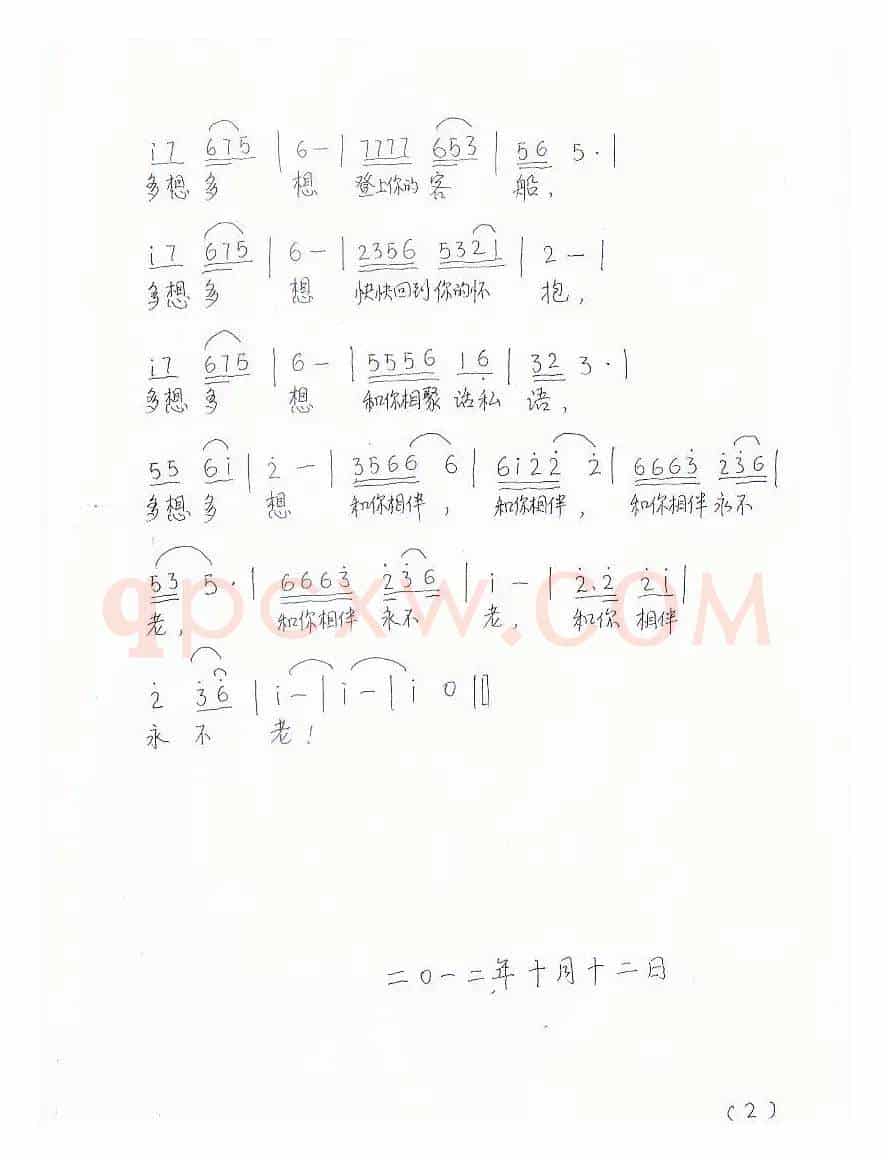 i7 675 | 6 - | 7777 653 | 56 5 · |
多想多 想 登上你的客 船,
i7 675 | 6 - | 2356 5321 | 2 - |
多想多 想 快快回到你的怀 抱,
i7 675 | 6 - | 5556 16 | 32 3 · |
多想多 想 和你相聚 话私 语,
55 6i | 2 - | 3566 6 | 6i22 2 | 6663 236 |
多想多 想 和你相伴, 和你相伴, 和你相伴 永不
53 5 · | 6663 236 | i - | 2.2 2i |
老, 和你相伴 永不 老, 和你 相伴
2 36 | i - | i - | i 0 ||
永 不 老!
qpcxw.COM
二〇一二年十月十二日
(2)